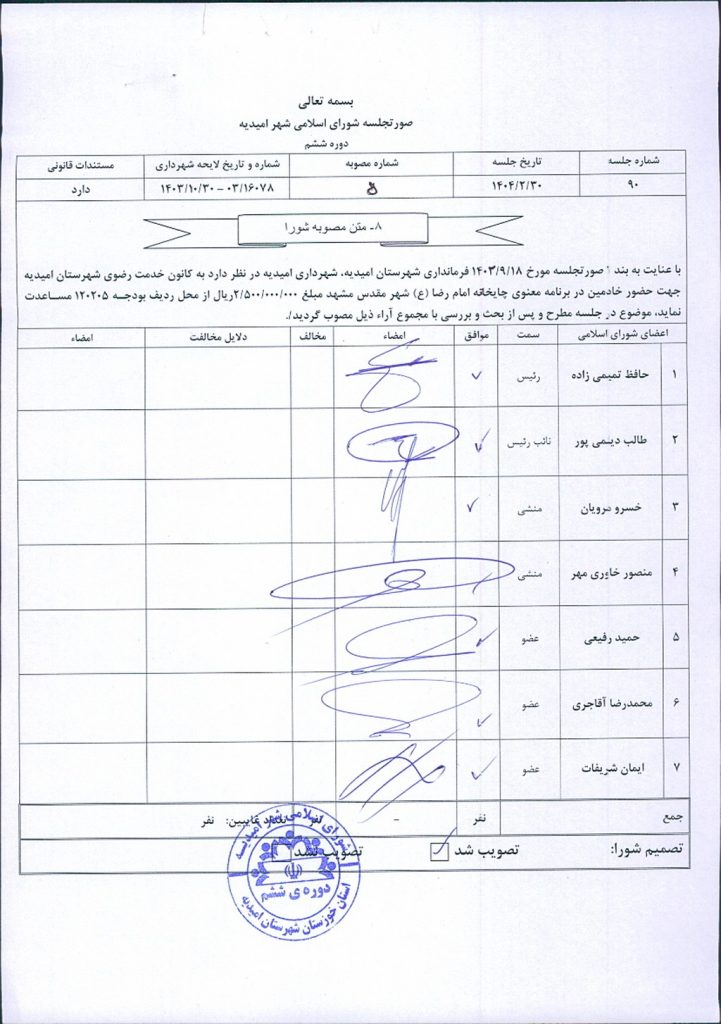 بسمه تعالی
صورتجلسه شورای اسلامی شهر امیدیه
دوره ششم
شماره جلسه تاریخ جلسه شماره مصوبه شماره و تاریخ لایحه شهرداری مستندات قانونی
۹۰ ۱۴۰۴/۲/۳۰ ۱۴۰۳/۱۰/۳۰ – ۰۳/۱۶۰۷۸ دارد
۸- متن مصوبه شورا
با عنایت به بند ۱ صورتجلسه مورخ ۱۴۰۳/۹/۱۸ فرمانداری شهرستان امیدیه، شهرداری امیدیه در نظر دارد به کانون خدمت رضوی شهرستان امیدیه
جهت حضور خادمین در برنامه معنوی چایخانه امام رضا (ع) شهر مقدس مشهد مبلغ ۲/۵۰۰/۰۰۰/۰۰۰ریال از محل ردیف بودجه ۱۲۰۲۰۵ مساعدت
نماید، موضوع در جلسه مطرح و پس از بحث و بررسی با مجموع آراء ذیل مصوب گردید/.
اعضای شورای اسلامی سمت موافق امضاء مخالف دلایل مخالفت امضاء
۱ حافظ تمیمی زاده رئیس ✓
۲ طالب دیلمی پور نائب رئیس ✓
۳ خسرو مرویان منشی ✓
۴ منصور خاوری مهر منشی
۵ حمید رفیعی عضو ✓
۶ محمدرضا آقاجری عضو ✓
۷ ایمان شریفات عضو ✓
جمع نفر - نفر تعداد غایبین: نفر
تصمیم شورا: تصویب شد ✓ تصویب نشد
شورای اسلامی شهر امیدیه
دوره ی ششم
استان خوزستان شهرستان امیدیه